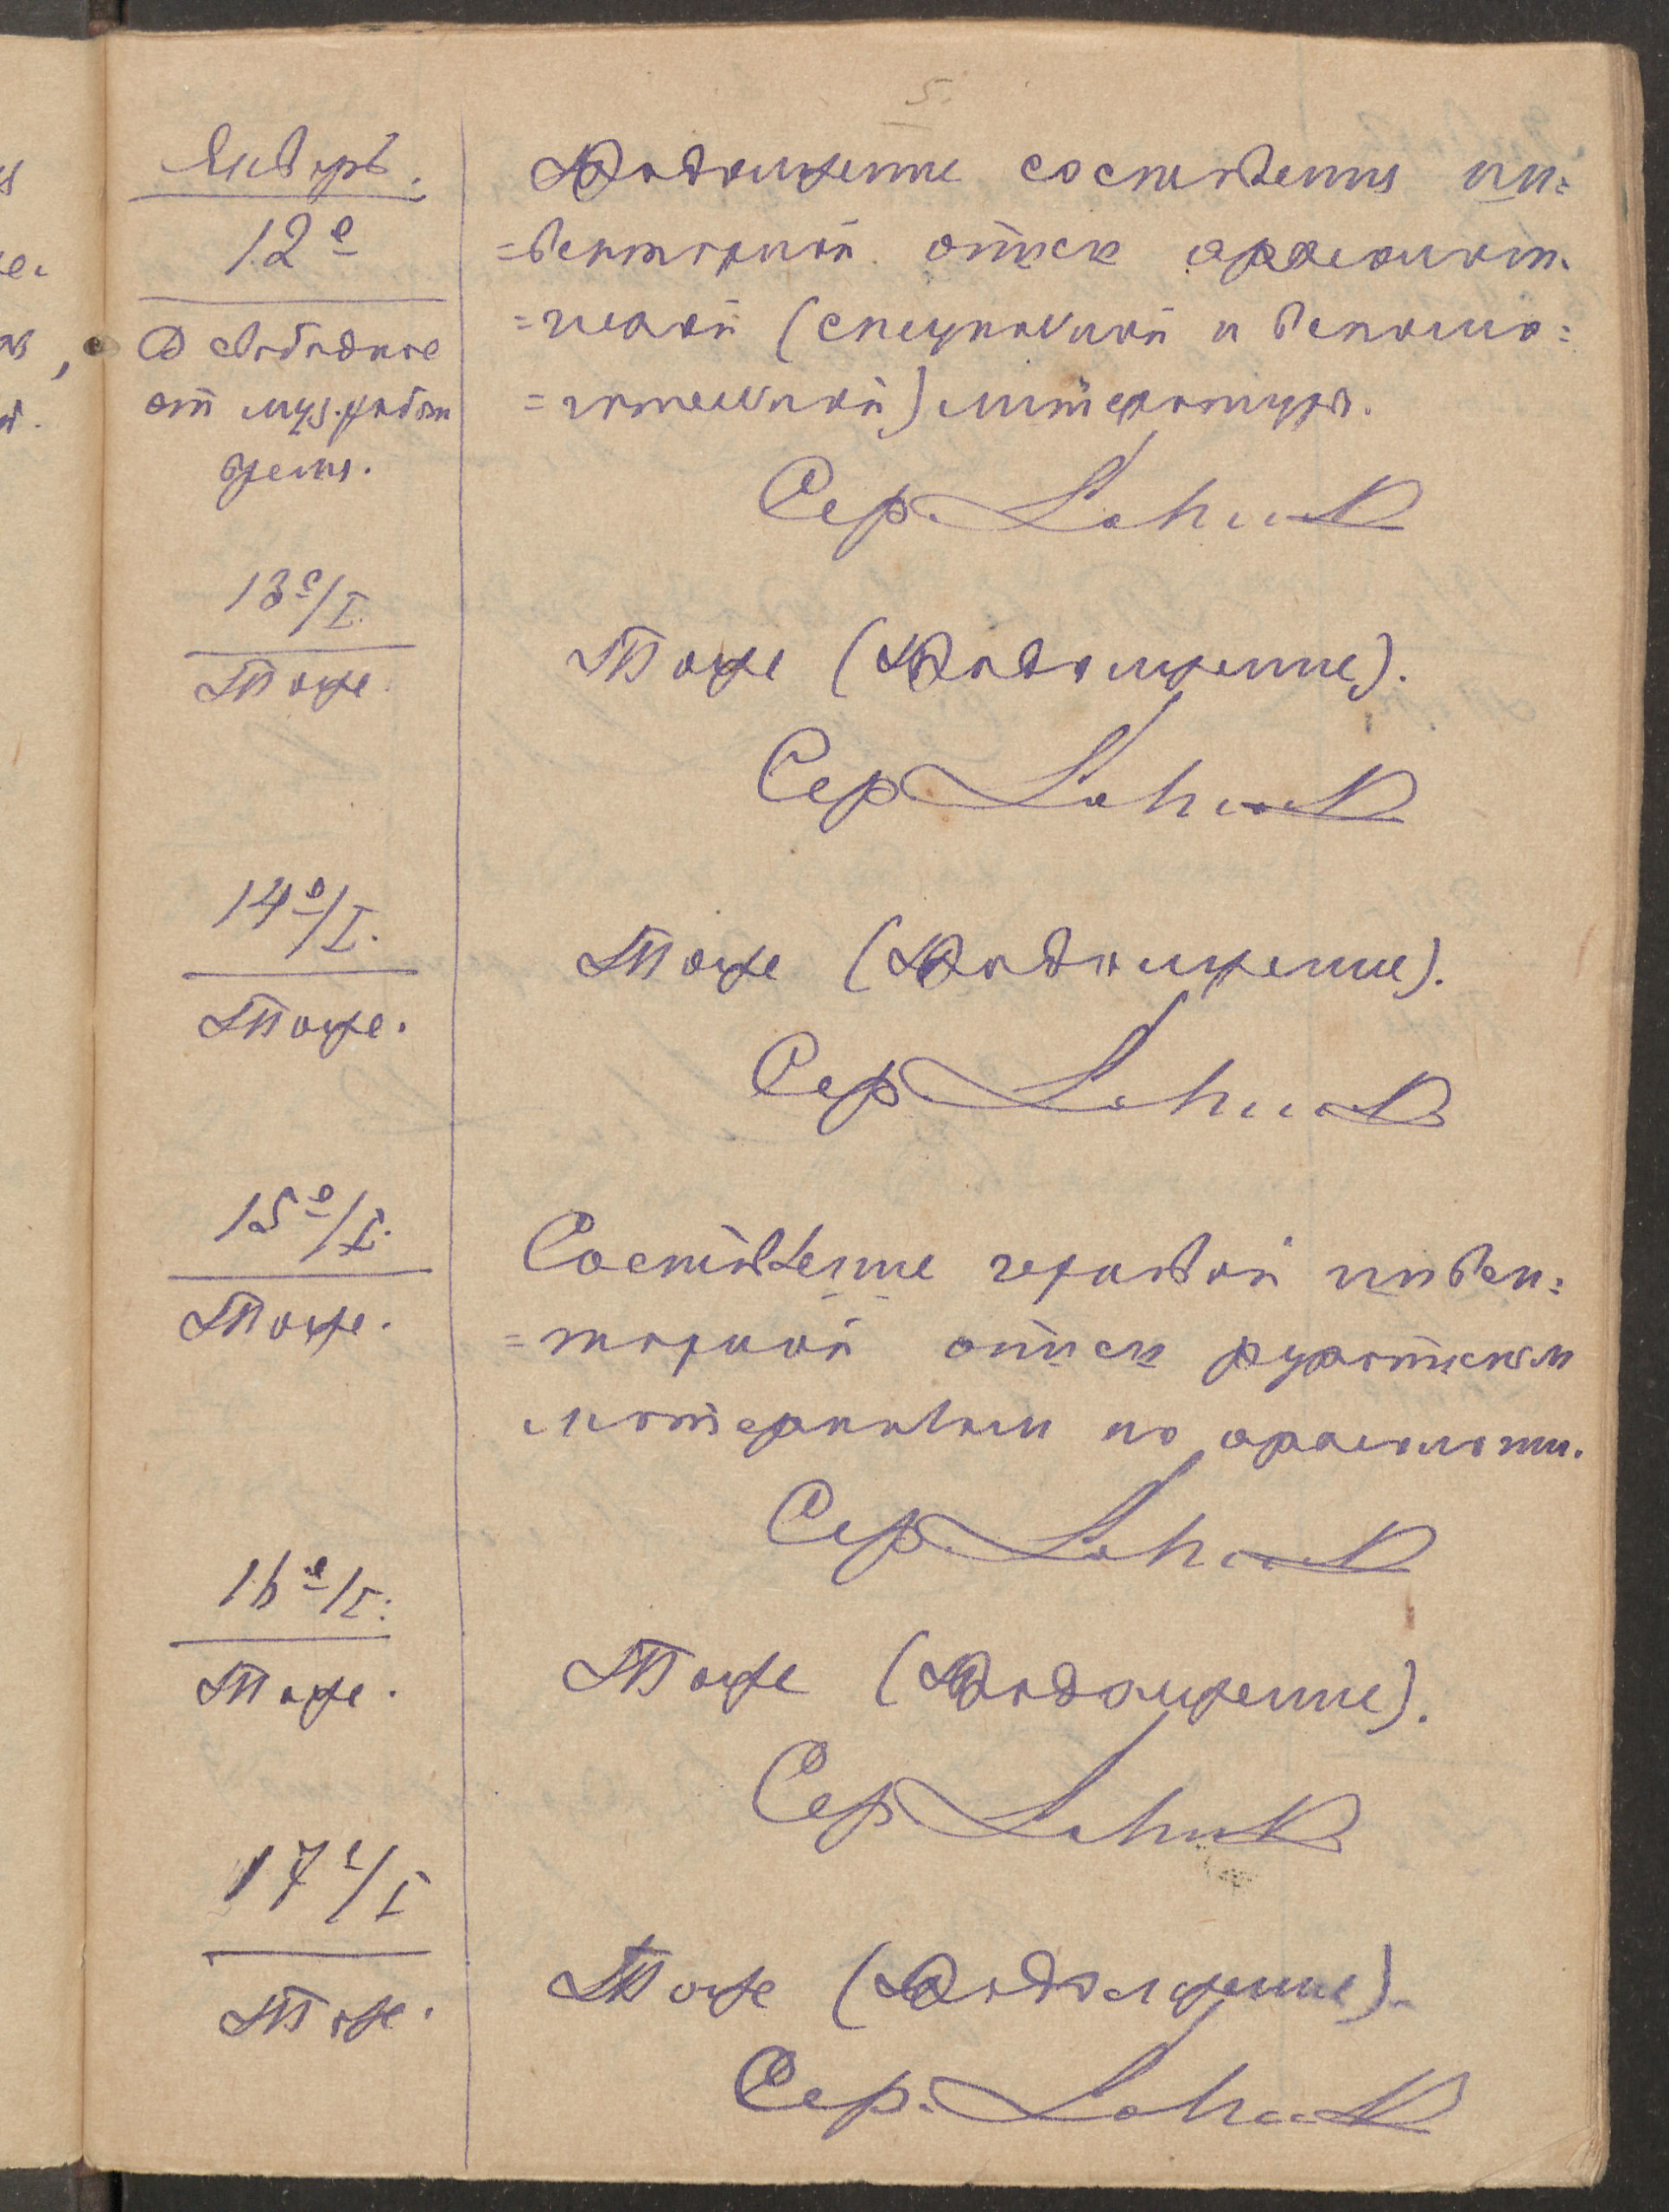 5.
Январь.
12е
В свободное
от муз. работ
время.
Продолжение составления ин=
=вентарной описи археологи=
=ческой (специальной и вспомо=
=гательной) литературы.
Сер.
13е/I.
Тоже.
Тоже (Продолжение).
Сер.
14е/I.
Тоже.
Тоже (Продолжение).
Сер.
15е/I.
Тоже.
Составление черновой инвен=
=тарной описи
материалам по археологии.
Сер.
16е/I.
Тоже.
Тоже (Продолжение).
Сер.
17е/I
Тоже.
Тоже (Продолжение).
Сер.